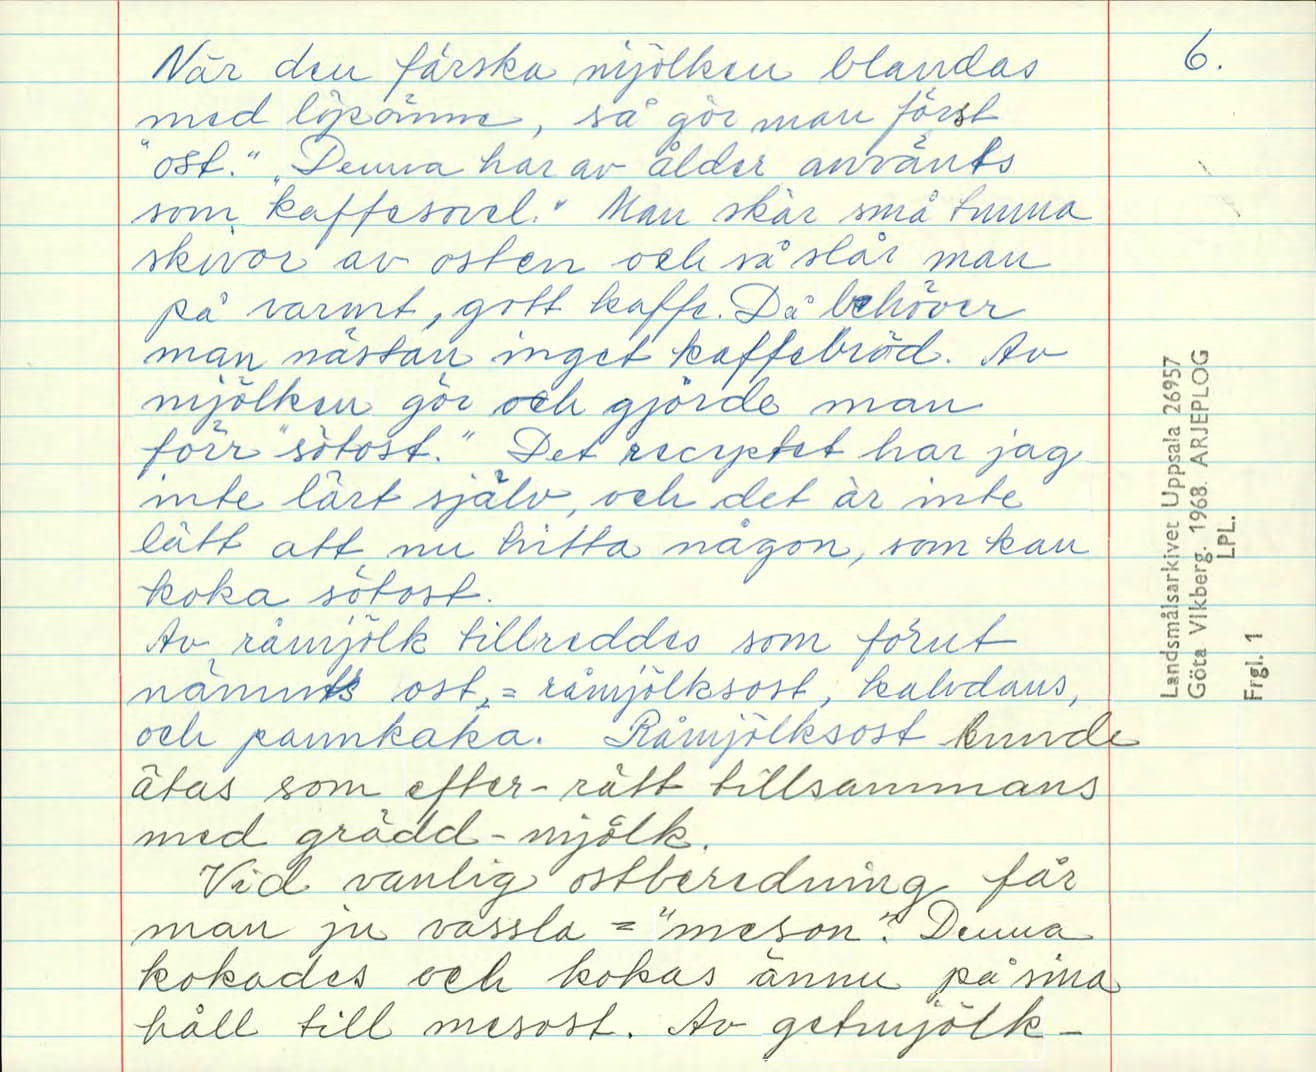 6.
När den färska mjölken blandas
med löpämne, så gör man först
"ost." Denna har av ålder använts
som "kaffesovel." Man skär små tunna
skivor av osten och så slår man
på varmt, gott kaffe. Då behöver
man nästan inget kaffebröd. Av
mjölken gör och gjorde man
förr "sötost." Det receptet har jag
inte lärt själv, och det är inte
lätt att nu hitta någon, som kan
koka sötost.
Av råmjölk tillreddes som förut
nämnts ost, = råmjölksost, kalvdans,
och pannkaka. Råmjölksost kunde
ätas som efter-rätt tillsammans
med grädd-mjölk.
Vid vanlig ostberedning får
man ju vassla = "meson". Denna
kokades och kokas ännu på sina
håll till mesost. Av getmjölk-
Landsmålsarkivet Uppsala 26957
Göta Vikberg. 1968. ARJEPLOG
LPL.
Frgl. 1